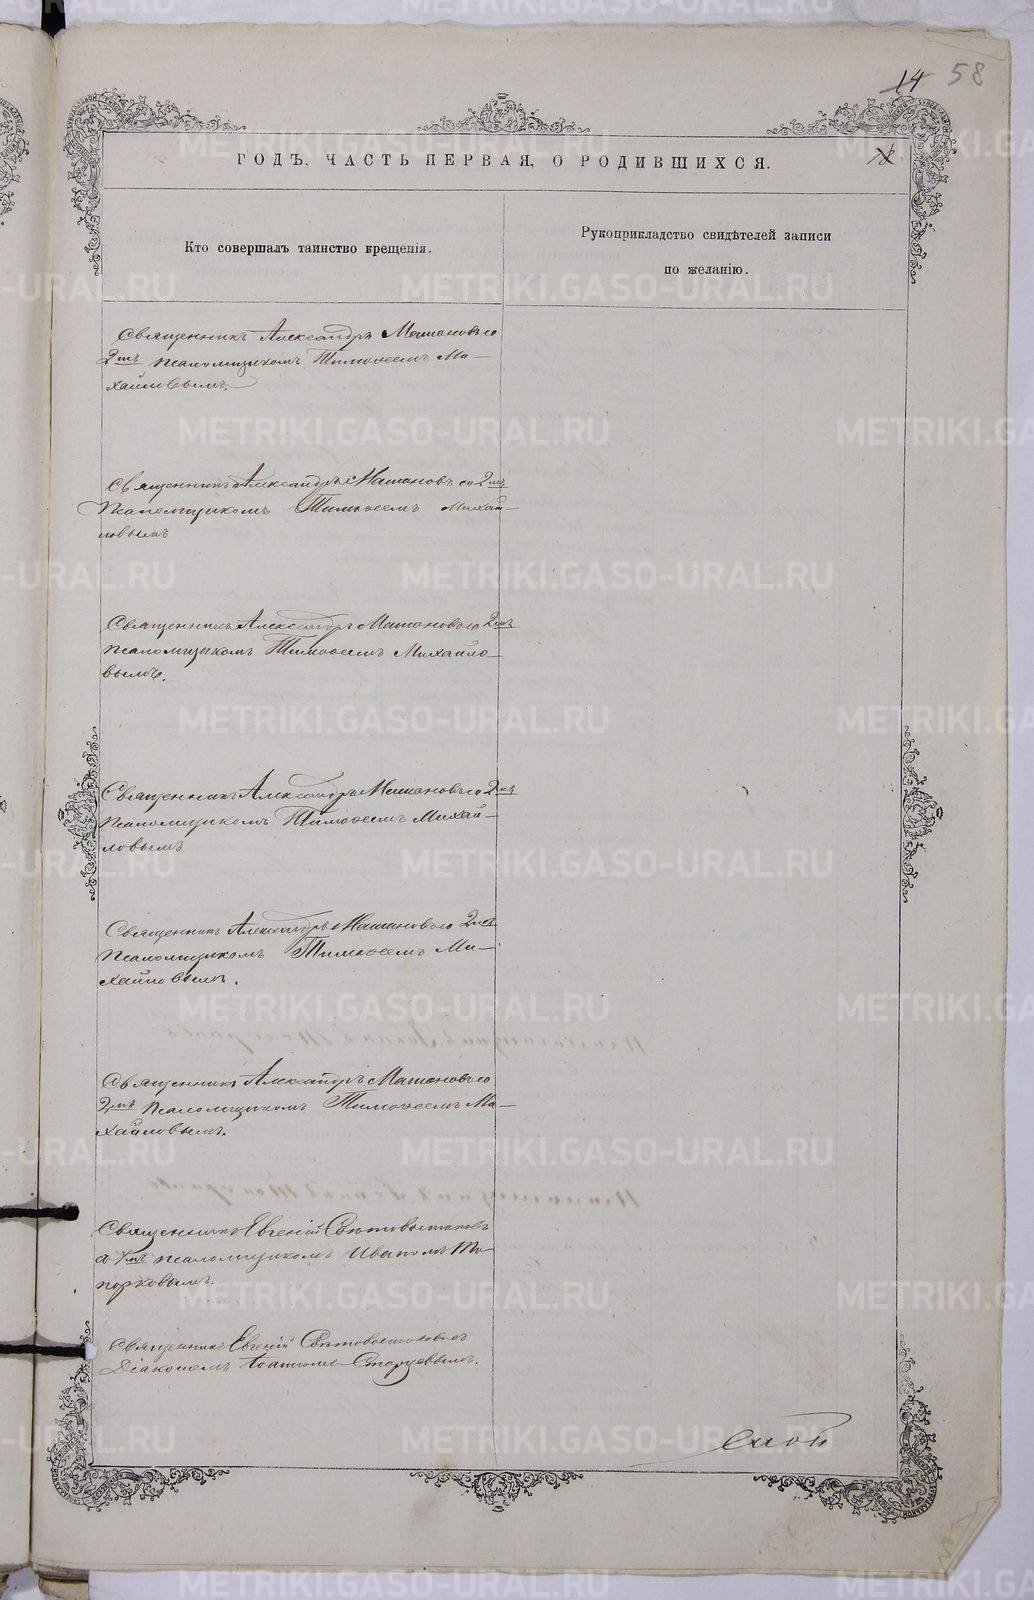 14 58
ГОДЪ. ЧАСТЬ ПЕРВАЯ, О РОДИВШИХСЯ.
Кто совершалъ таинство крещенія.
Рукоприкладство свидѣтелей записи
по желанію.
Священникъ Александръ Машановъ со
2мъ псаломщикомъ Тимоѳеемъ Ми-
хайловымъ.
Священникъ Александръ Машановъ со 2мъ
псаломщикомъ Тимоѳеемъ Михай-
ловымъ
Священникъ Александръ Машановъ со 2мъ
псаломщикомъ Тимоѳеемъ Михайло-
вымъ.
Священникъ Александръ Машановъ со 2мъ
псаломщикомъ Тимоѳеемъ Михай-
ловымъ
Священникъ Александръ Машановъ со 2мъ
псаломщикомъ Тимоѳеемъ Ми-
хайловымъ.
Священникъ Александръ Машановъ со
2мъ псаломщикомъ Тимоѳеемъ Ми-
хайловымъ.
Священникъ Евгеній Свѣтовостоковъ
съ 1мъ псаломщикомъ Иваномъ То-
порковымъ.
Священникъ Евгеній Свѣтовостоковъ съ
Діакономъ Іоанномъ Старцевымъ.
METRIKI.GASO-URAL.RU